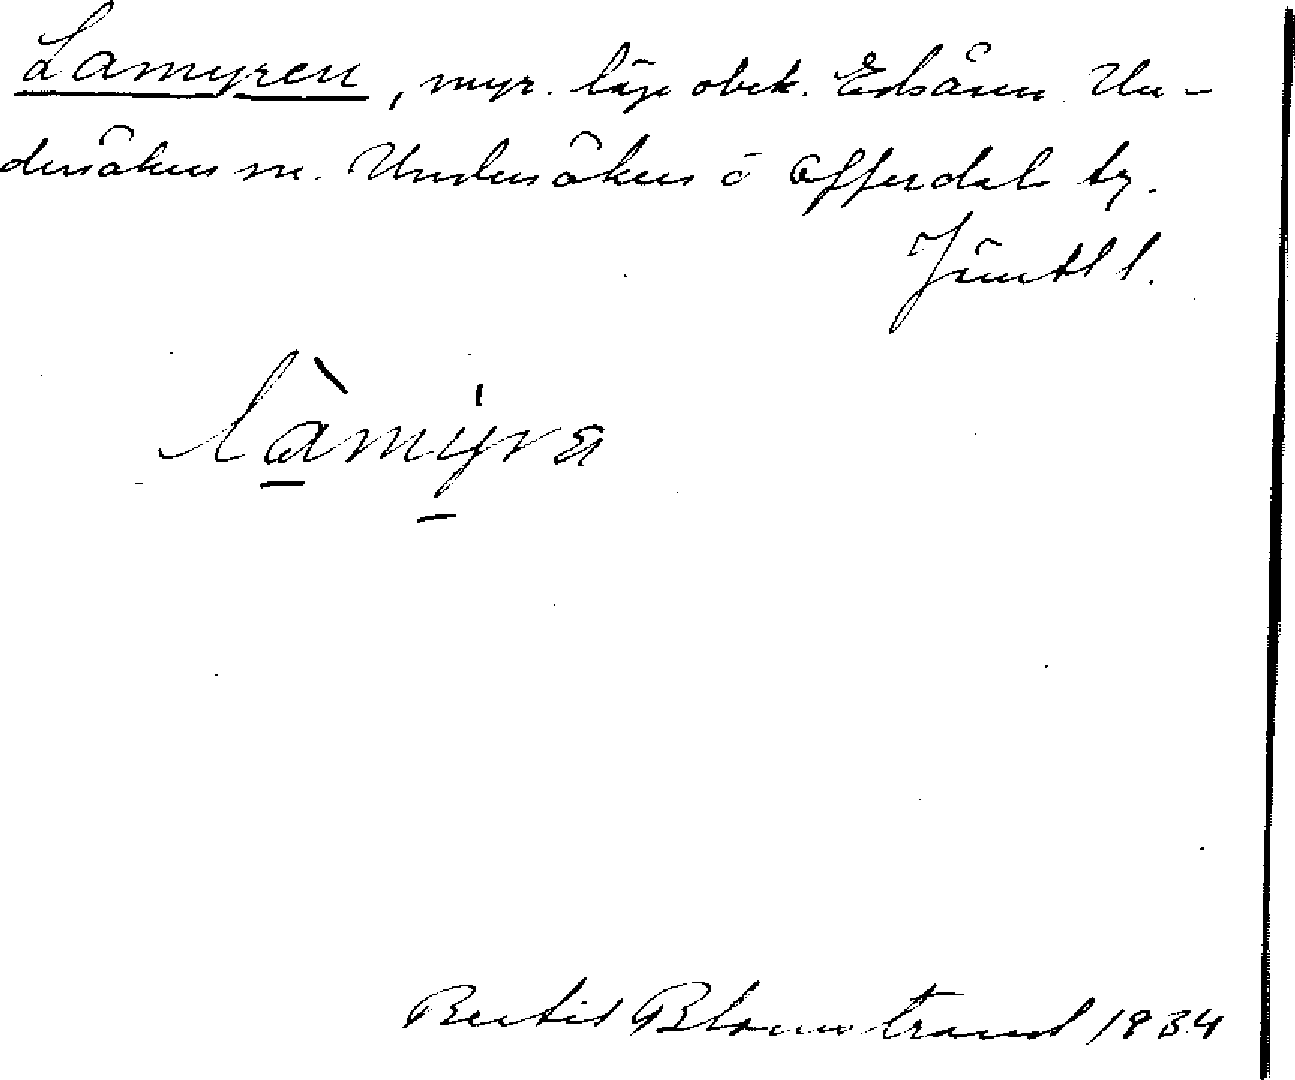 Lamyren, myr. läge obek. Edsåsen. Un-
dersåkers sn. Undersåkers o Offerdals tg.
Jämtl l.
làmy̍ra
Bertil Blomstrand 1934